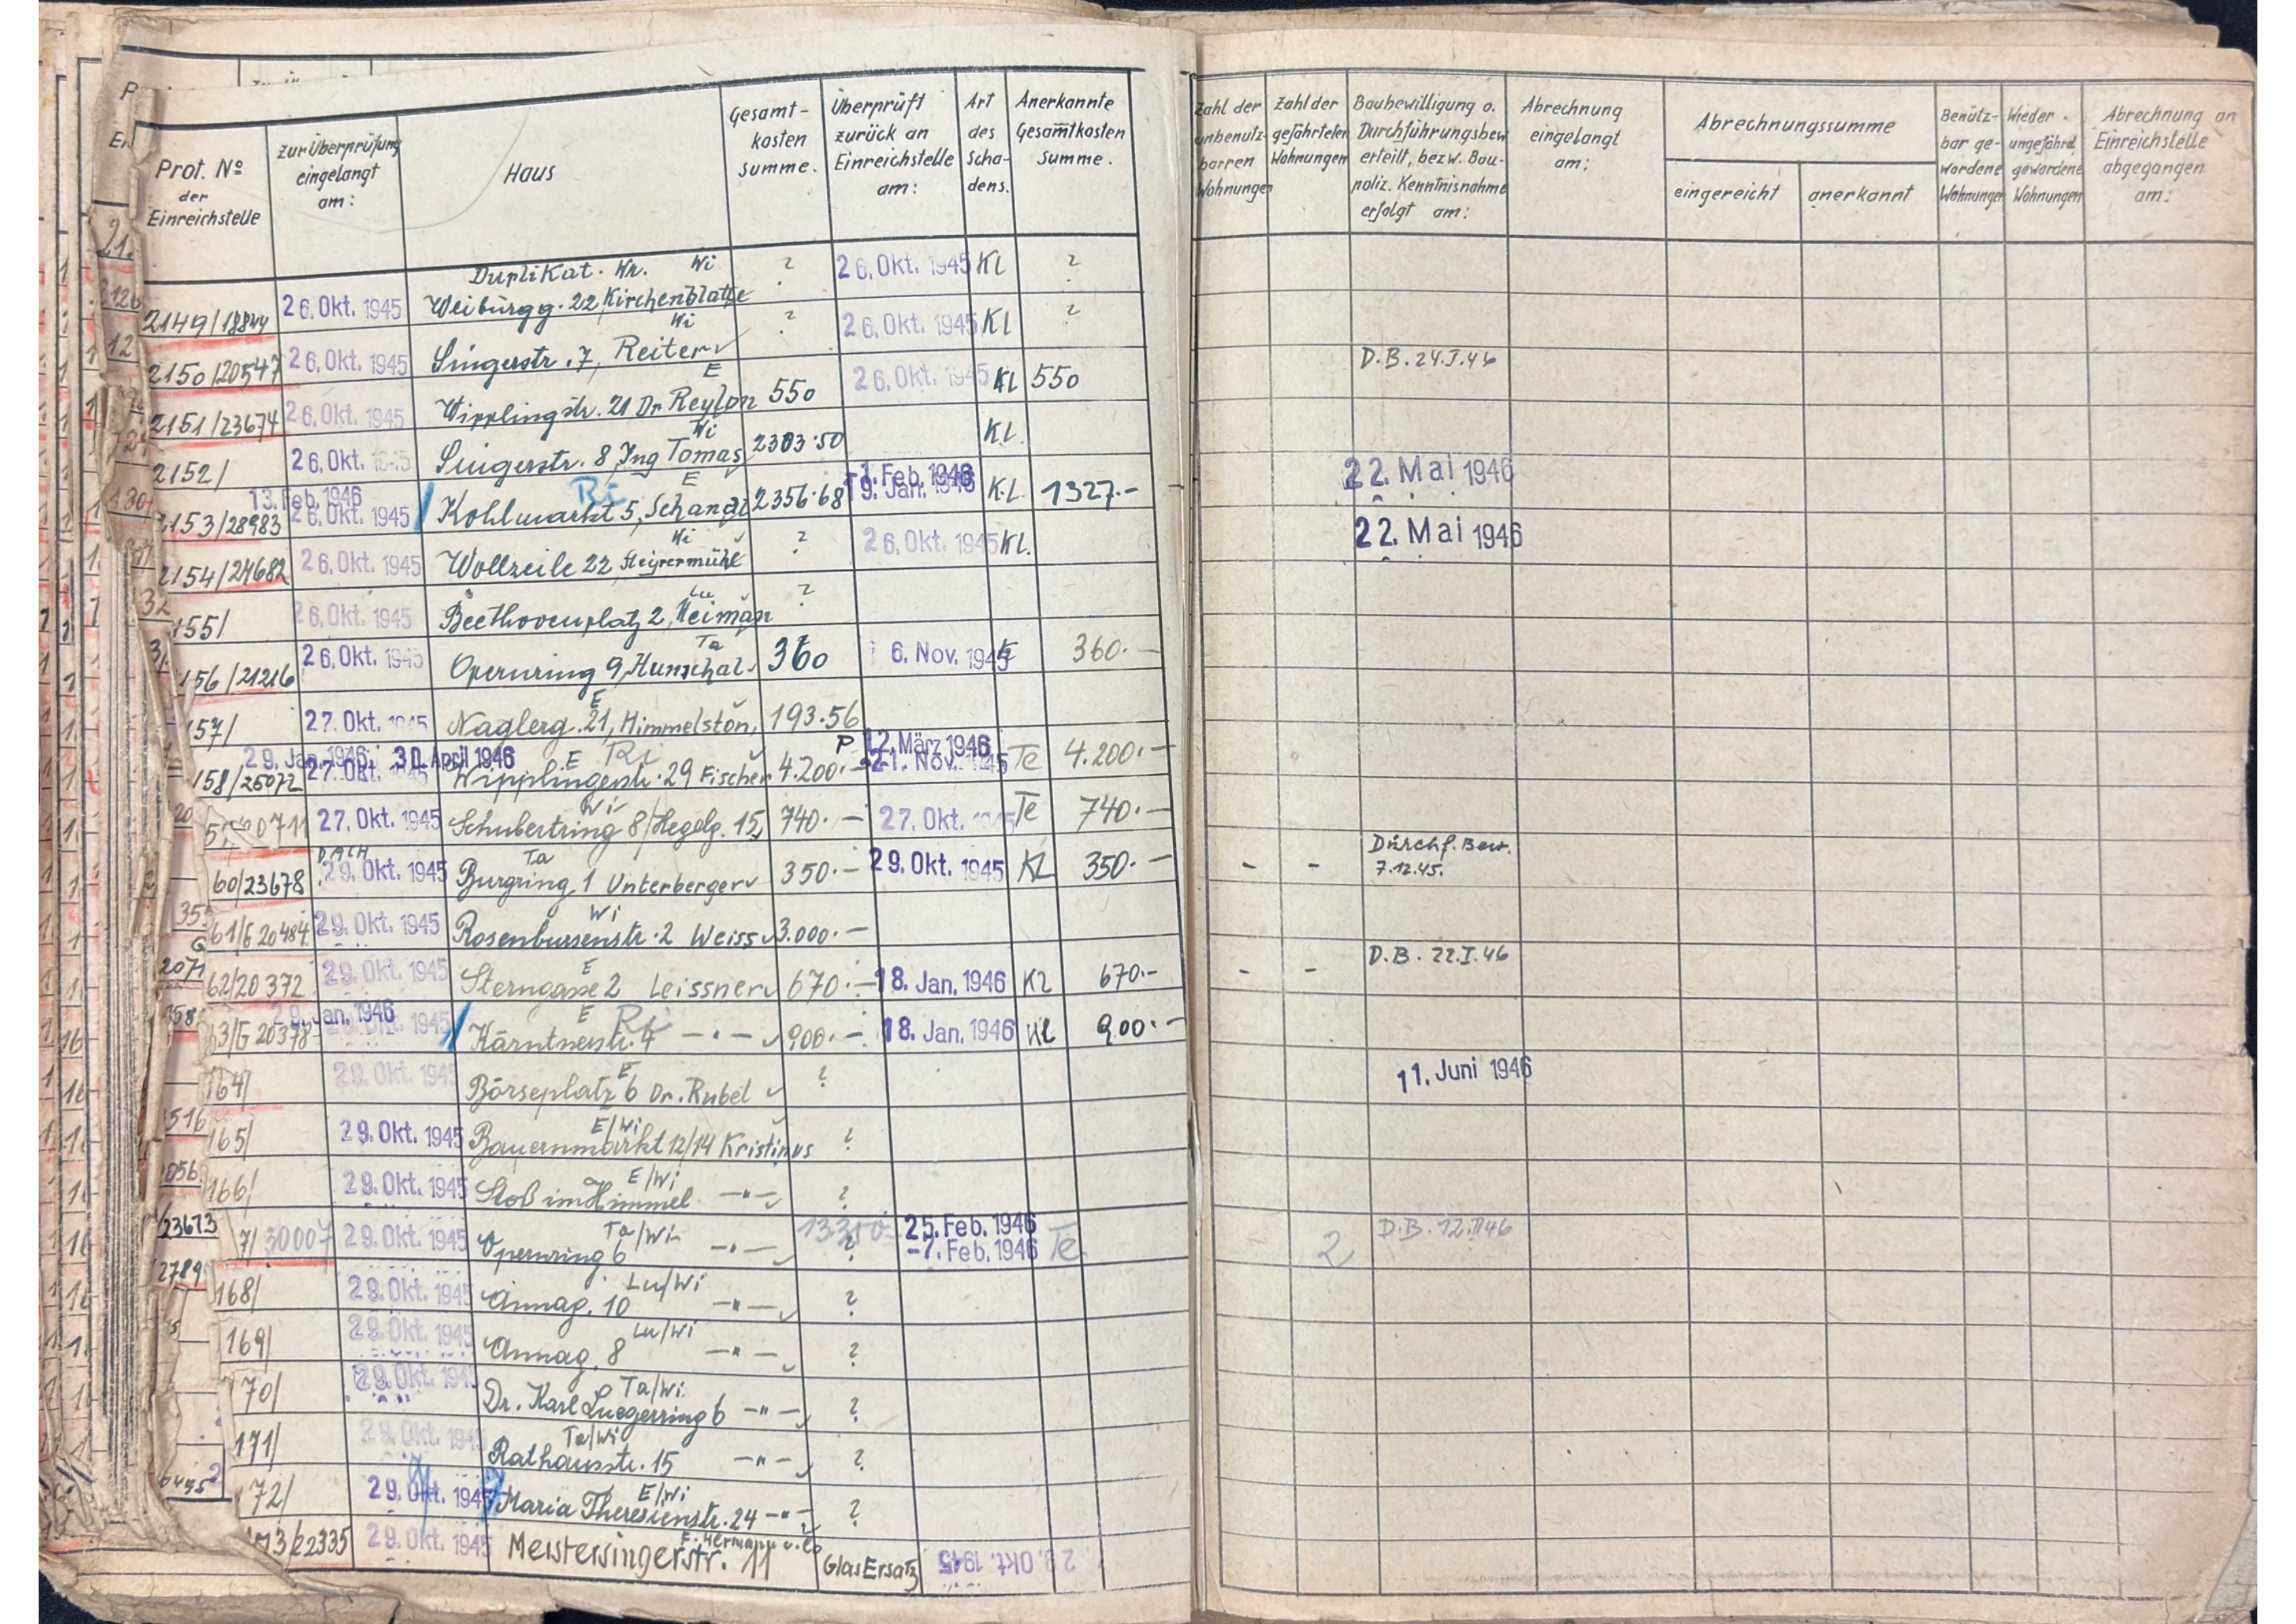 Prot. Nº der Einreichstelle
zur Überprüfung eingelangt am:
Haus
Gesamt-kosten Summe.
Überprüft zurück an Einreichstelle am:
Art des Scha-dens.
Anerkannte Gesamtkosten Summe.
Zahl der unbenutz-barren Wohnungen
Zahl der gefährteten Wohnungen
Baubewilligung o. Durchführungsbew erteilt, bezw. Bau-poliz. Kenntnisnahme erfolgt am:
Abrechnung eingelangt am:
Abrechnungssumme
eingereicht
anerkannt
Benütz-bar ge-wordene Wohnungen
Wieder ungefährd. gewordene Wohnungen
Abrechnung an Einreichstelle abgegangen am:
2149/18844 26. Okt. 1945 Duplikat. Wr. Wi Weiburgg. 22, Kirchenblatte ? 26. Okt. 1945 Kl ?
2150/20547 26. Okt. 1945 Wi Singerstr. 7, Reiter ? 26. Okt. 1945 Kl ?
2151/23674 26. Okt. 1945 E Wipplingstr. 21 Dr Reylon 550 26. Okt. 1945 Kl 550 D.B. 24.I.46
2152/ 26. Okt. 1945 Wi Singerstr. 8, Ing Tomas 2303.50 Kl.
2153/28983 13. Feb. 1946 26. Okt. 1945 Ri E Kohlmarkt 5, Schanzl 2356.68 1. Feb. 1946 19. Jan. 1946 K.L. 1327.- 22. Mai 1946
2154/24682 26. Okt. 1945 Wi Wollzeile 22 Steyrermühl ? 26. Okt. 1945 Kl. 22. Mai 1946
155/ 26. Okt. 1945 Lu Beethovenplatz 2, Heiman ?
156/21216 26. Okt. 1945 Ta Opernring 9, Hunschal 360 6. Nov. 1945 360.-
157/ 27. Okt. 1945 E Naglerg. 21, Himmelston, 193.56
158/25072 29. Jan. 1946 30. April 1946 27. Okt. 1945 E Ri Wipplingerstr. 29 Fischer 4.200.- P 12. März 1946 21. Nov. 1945 Te 4.200.-
27. Okt. 1945 Wi Schubertring 8/Hegelg. 15, 740.- 27. Okt. 1945 Te 740.-
60/23678 DACH 29. Okt. 1945 Ta Burgring 1 Unterberger 350.- 29. Okt. 1945 Kl 350.- - - Durchf. Bew. 7.12.45.
61/G 20484 29. Okt. 1945 Wi Rosenbursenstr. 2 Weiss 3.000.-
62/20372 29. Okt. 1945 E Sterngasse 2 Leissner 670.- 18. Jan. 1946 Kl 670.- - - D.B. 22.I.46
63/G 20378 29. Jan. 1946 29. Okt. 1945 E Ri Kärntnerstr. 4 -"- 900.- 18. Jan. 1946 Kl 900.-
164/ 29. Okt. 1945 E Börseplatz 6 Dr. Rubel ? 11. Juni 1946
165/ 29. Okt. 1945 E/Wi Bauernmarkt 12/14 Kristinus ?
166/ 29. Okt. 1945 E/Wi Stoß im Himmel -"- ?
7/30007 29. Okt. 1945 Ta/Wi Opernring 6 -"- 13350 ? 25. Feb. 1946 -7. Feb. 1946 Te 2 D.B. 12.II46
168/ 29. Okt. 1945 Lu/Wi Annag. 10 -"- ?
169/ 29. Okt. 1945 Lu/Wi Annag. 8 -"- ?
70/ 29. Okt. 1945 Ta/Wi Dr. Karl Luegerring 6 -"- ?
171/ 29. Okt. 1945 Ta/Wi Rathausstr. 15 -"- ?
72/ 29. Okt. 1945 E/Wi Maria Theresienstr. 24 -"- ?
173/22335 29. Okt. 1945 F. Hermann u. Co Meistersingerstr. 11 Glas Ersatz 29. Okt. 1945